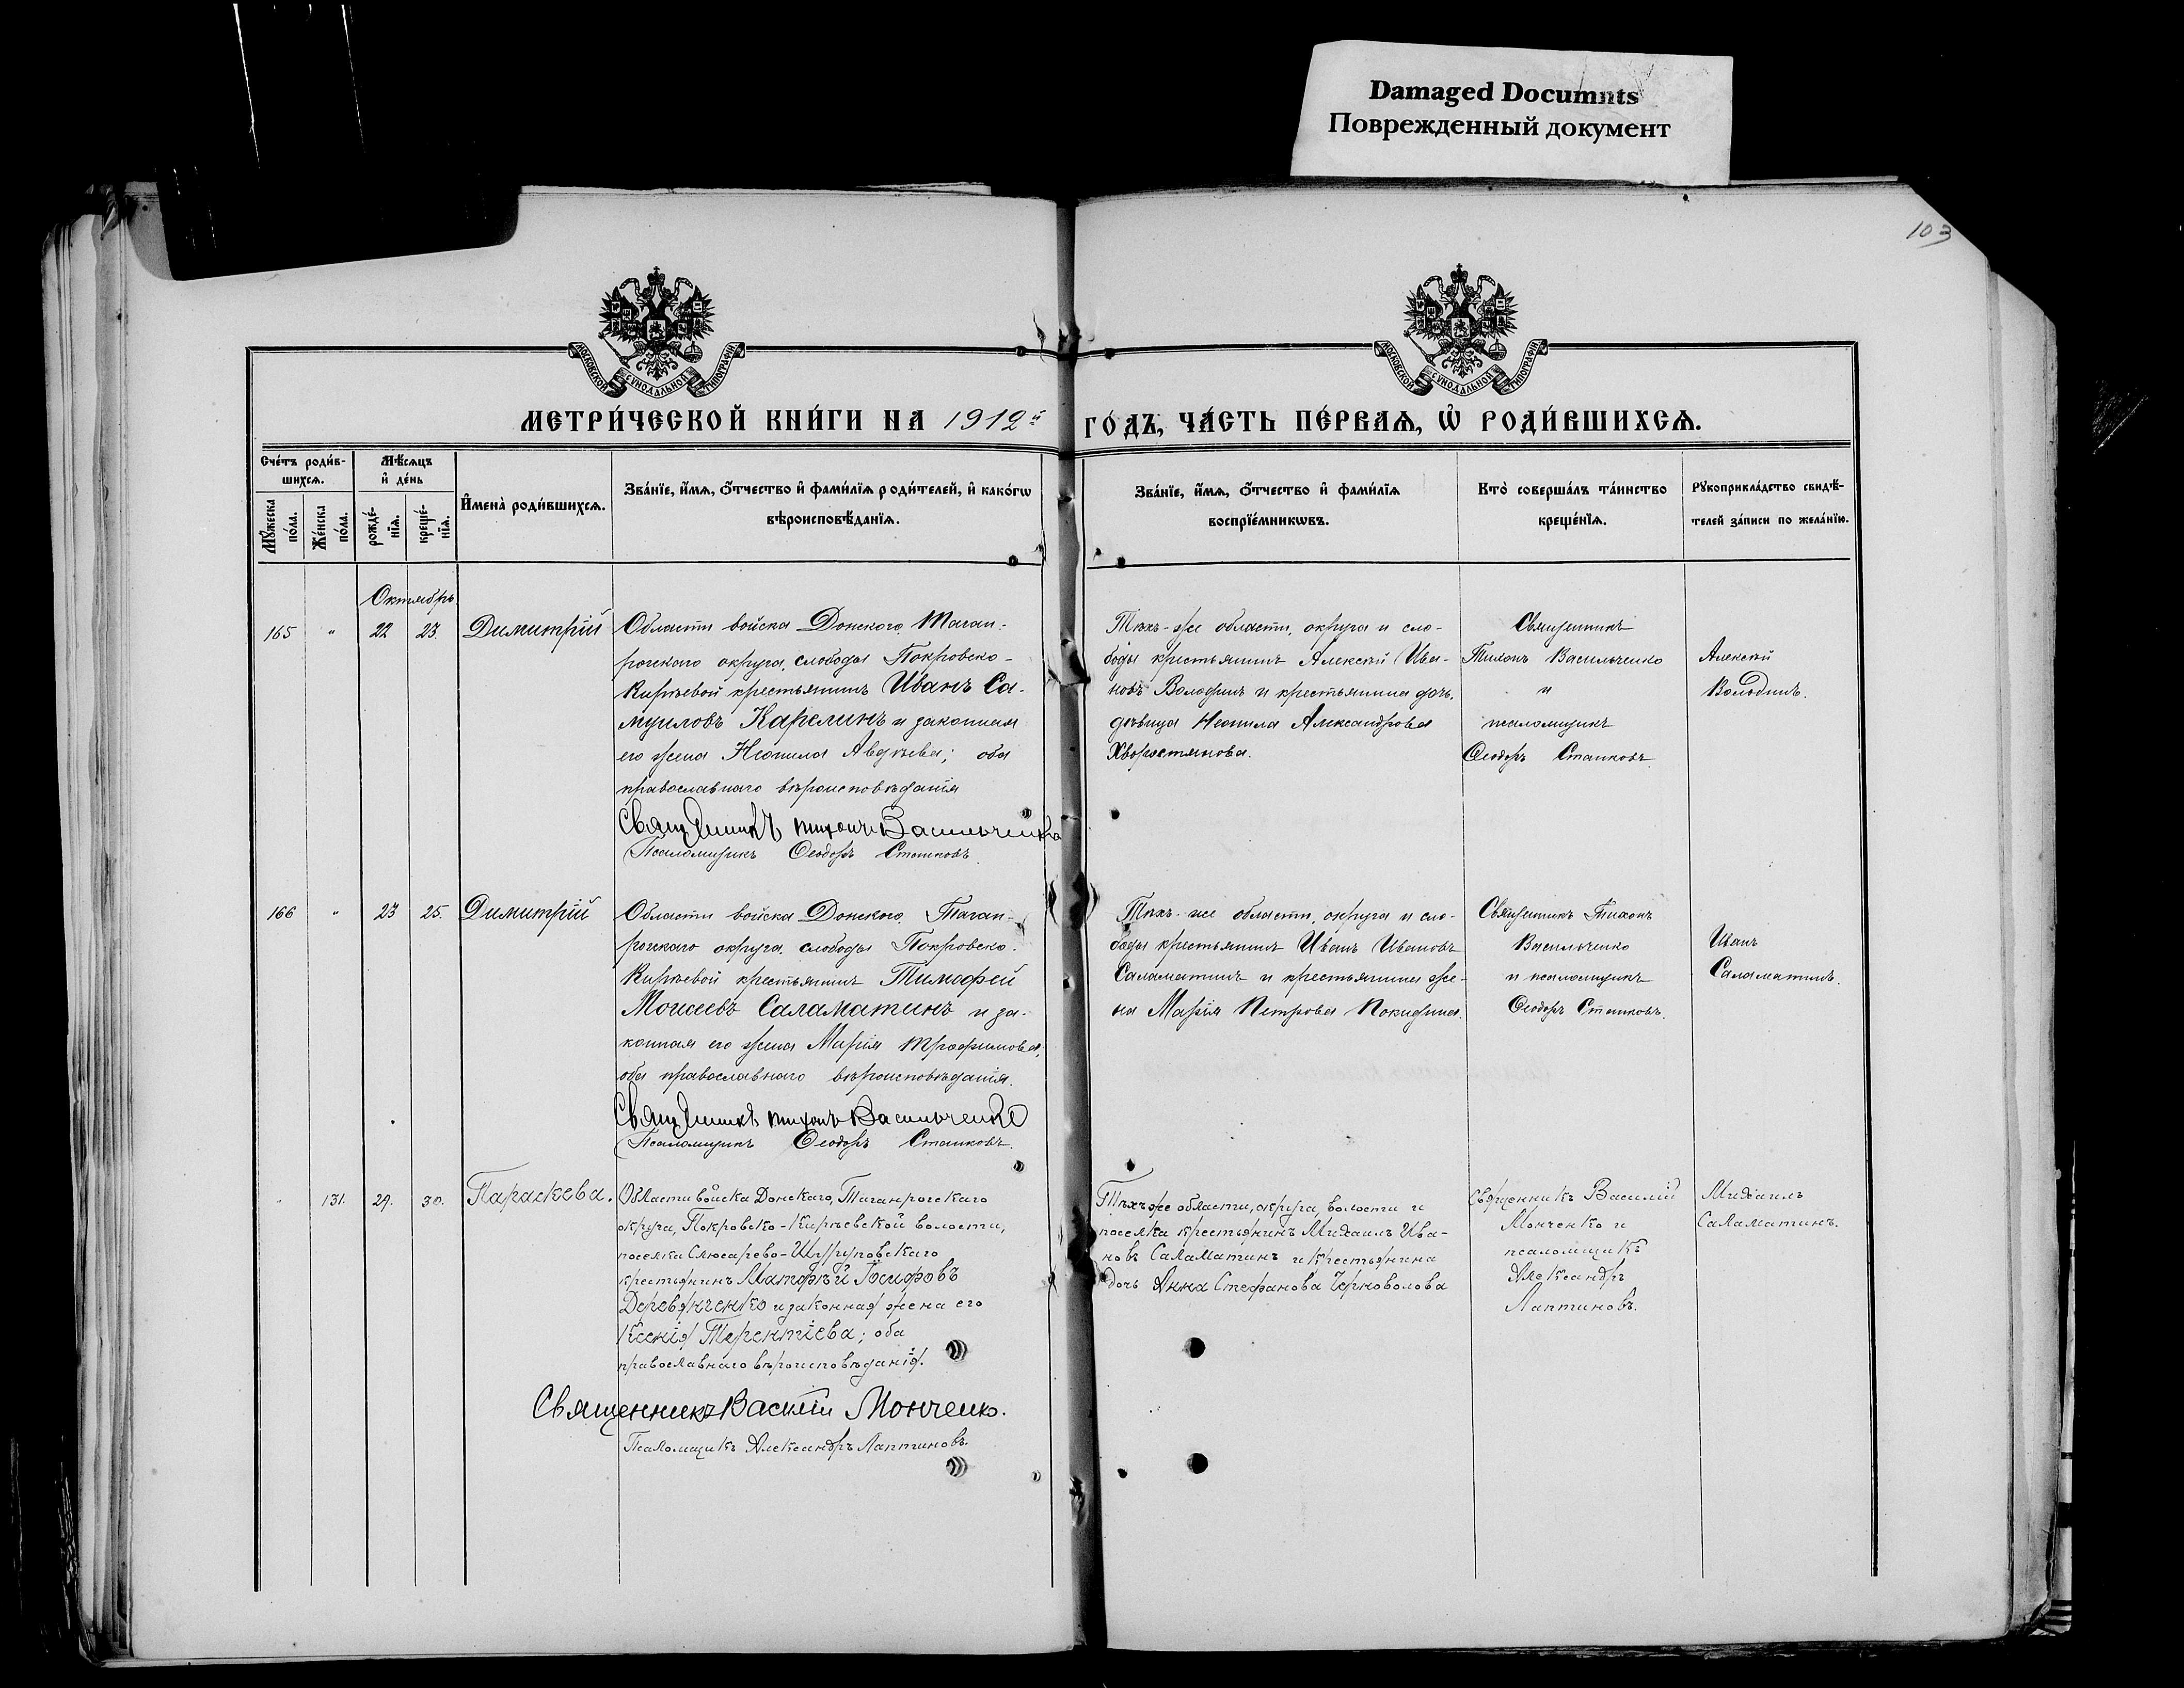 Damaged Documnts
Поврежденный документ
103
МОСКОВСКОЙ СѴНОДАЛЬНОЙ ТИПОГРАФІИ
МОСКОВСКОЙ СѴНОДАЛЬНОЙ ТИПОГРАФІИ
МЕТРИ́ЧЕСКОЙ КНИ́ГИ НА 1912й ГО́ДЪ, ЧА́СТЬ ПЕ́РВАѦ, Ѡ҆ РОДИ́ВШИХСѦ.
Сче́тъ роди́в-
шихсѧ.
Мѣ́сѧцъ
и҆ де́нь
Мꙋ́жеска
по́ла.
Же́нска
по́ла.
рожде́-
нїѧ.
креще́-
нїѧ.
И҆мена̀ роди́вшихсѧ.
Зва́нїе, и҆́мѧ, ѻ҆́тчество и҆ фами́лїѧ роди́телей, и҆ како́гѡ
вѣроисповѣ́данїѧ.
Зва́нїе, и҆́мѧ, ѻ҆́тчество и҆ фами́лїѧ
воспрїе́мникѡвъ.
Кто̀ соверша́лъ та́инство
креще́нїѧ.
Рꙋкоприкла́дство свидѣ́-
телей за́писи по жела́нїю.
Октябрь
165 " 22 23. Димитрій
Области войска Донского, Таган-
рогскаго округа, слободы Покровско-
Кирѣевой крестьянинъ Иванъ Са-
муиловъ Карелинъ и законная
его жена Неонила Авдѣева; оба
православнаго вѣроисповѣданія
Священникъ Тихонъ Васильченко
Псаломщикъ Ѳеодоръ Сташковъ
Тѣхъ-же области, округа и сло-
боды крестьянинъ Алексѣй Ива-
новъ Володинъ и крестьянина дочь,
дѣвица Неонила Александрова
Хворостянова.
Священникъ
Тихонъ Васильченко
и
псаломщикъ
Ѳеодоръ Сташковъ
Алексѣй
Володинъ.
166 " 23 25. Димитрій
Области войска Донского, Таган-
рогскаго округа, слободы Покровско-
Кирѣевой крестьянинъ Тимофей
Моисеевъ Саламатинъ и за-
конная его жена Марія Трофимова,
оба православнаго вѣроисповѣданія.
Священникъ Тихонъ Васильченко
Псаломщикъ Ѳеодоръ Сташковъ.
Тѣхъ-же области, округа и сло-
боды крестьянинъ Иванъ Ивановъ
Саламатинъ и крестьянина же-
на Марія Петрова Покидина.
Священникъ Тихонъ
Васильченко
и псаломщикъ
Ѳеодоръ Сташковъ.
Иванъ
Саламатинъ.
" 131. 29. 30. Параскева.
Области войска Донскаго, Таганрогскаго
округа, Покровско-Кирѣевской волости,
поселка Слюсарево-Шуруповскаго
крестьянинъ Матфѣй Іосифовъ
Деревянченко и законная жена его
Ксенія Терентіева; оба
православнаго вѣроисповѣданія.
Священникъ Василій Монченко.
Псаломщикъ Александръ Лаптиновъ.
Тѣхъ же области, округа, волости и
поселка крестьянинъ Михаилъ Ива-
новъ Саламатинъ и крестьянина
дочь Анна Стефанова Черноволова
Священникъ Василій
Монченко и
псаломщикъ
Александръ
Лаптиновъ.
Михаилъ
Саламатинъ.